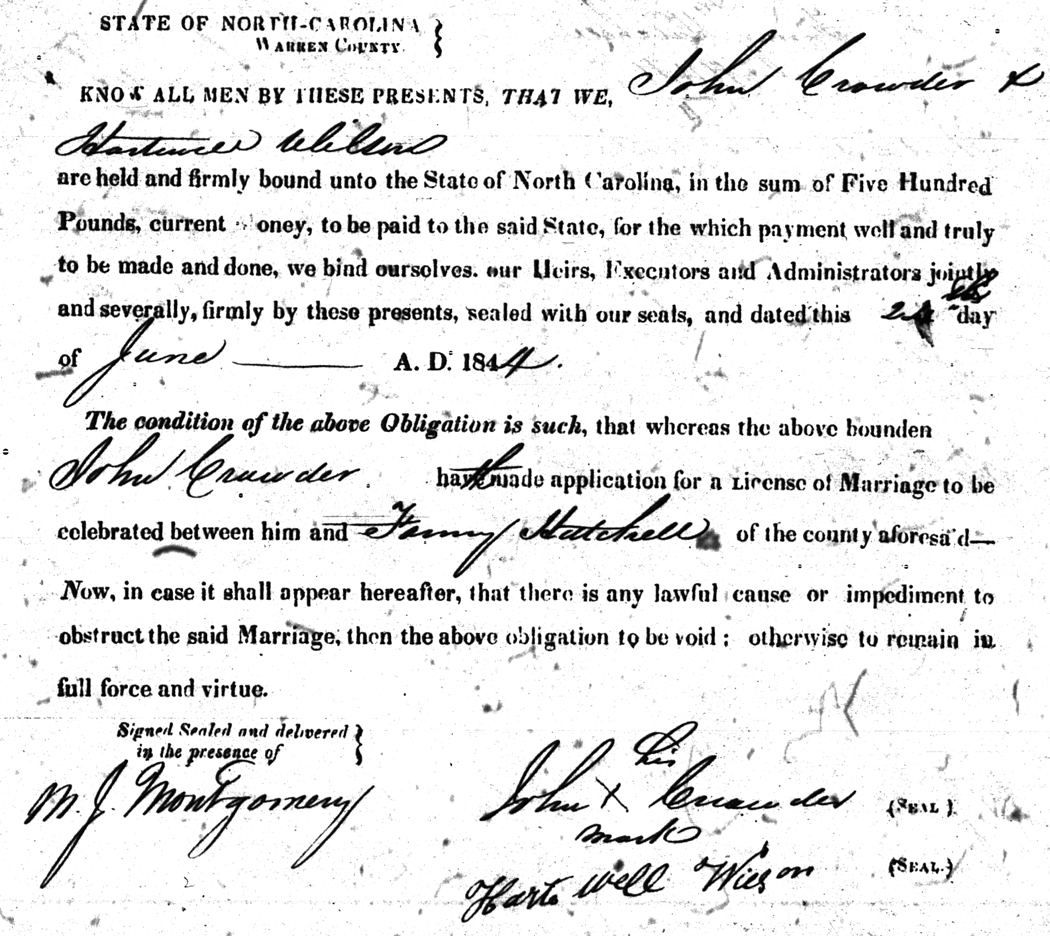 STATE OF NORTH-CAROLINA }
WARREN COUNTY.
KNOW ALL MEN BY THESE PRESENTS, THAT WE, John Crowder &
Hartwell Wilson
are held and firmly bound unto the State of North Carolina, in the sum of Five Hundred
Pounds, current oney, to be paid to the said State, for the which payment well and truly
to be made and done, we bind ourselves. our Heirs, Executors and Administrators jointly
and severally, firmly by these presents, sealed with our seals, and dated this day
of June A. D. 1844.
The condition of the above Obligation is such, that whereas the above bounden
John Crowder hath made application for a License of Marriage to be
celebrated between him and Fanny Hatchell of the county aforesa'd—
Now, in case it shall appear hereafter, that there is any lawful cause or impediment to
obstruct the said Marriage, then the above obligation to be void : otherwise to remain in
full force and virtue.
Signed Sealed and delivered }
in the presence of
M. J. Montgomery
his
John X Crowder (SEAL)
mark
Hartwell Wilson (SEAL.)